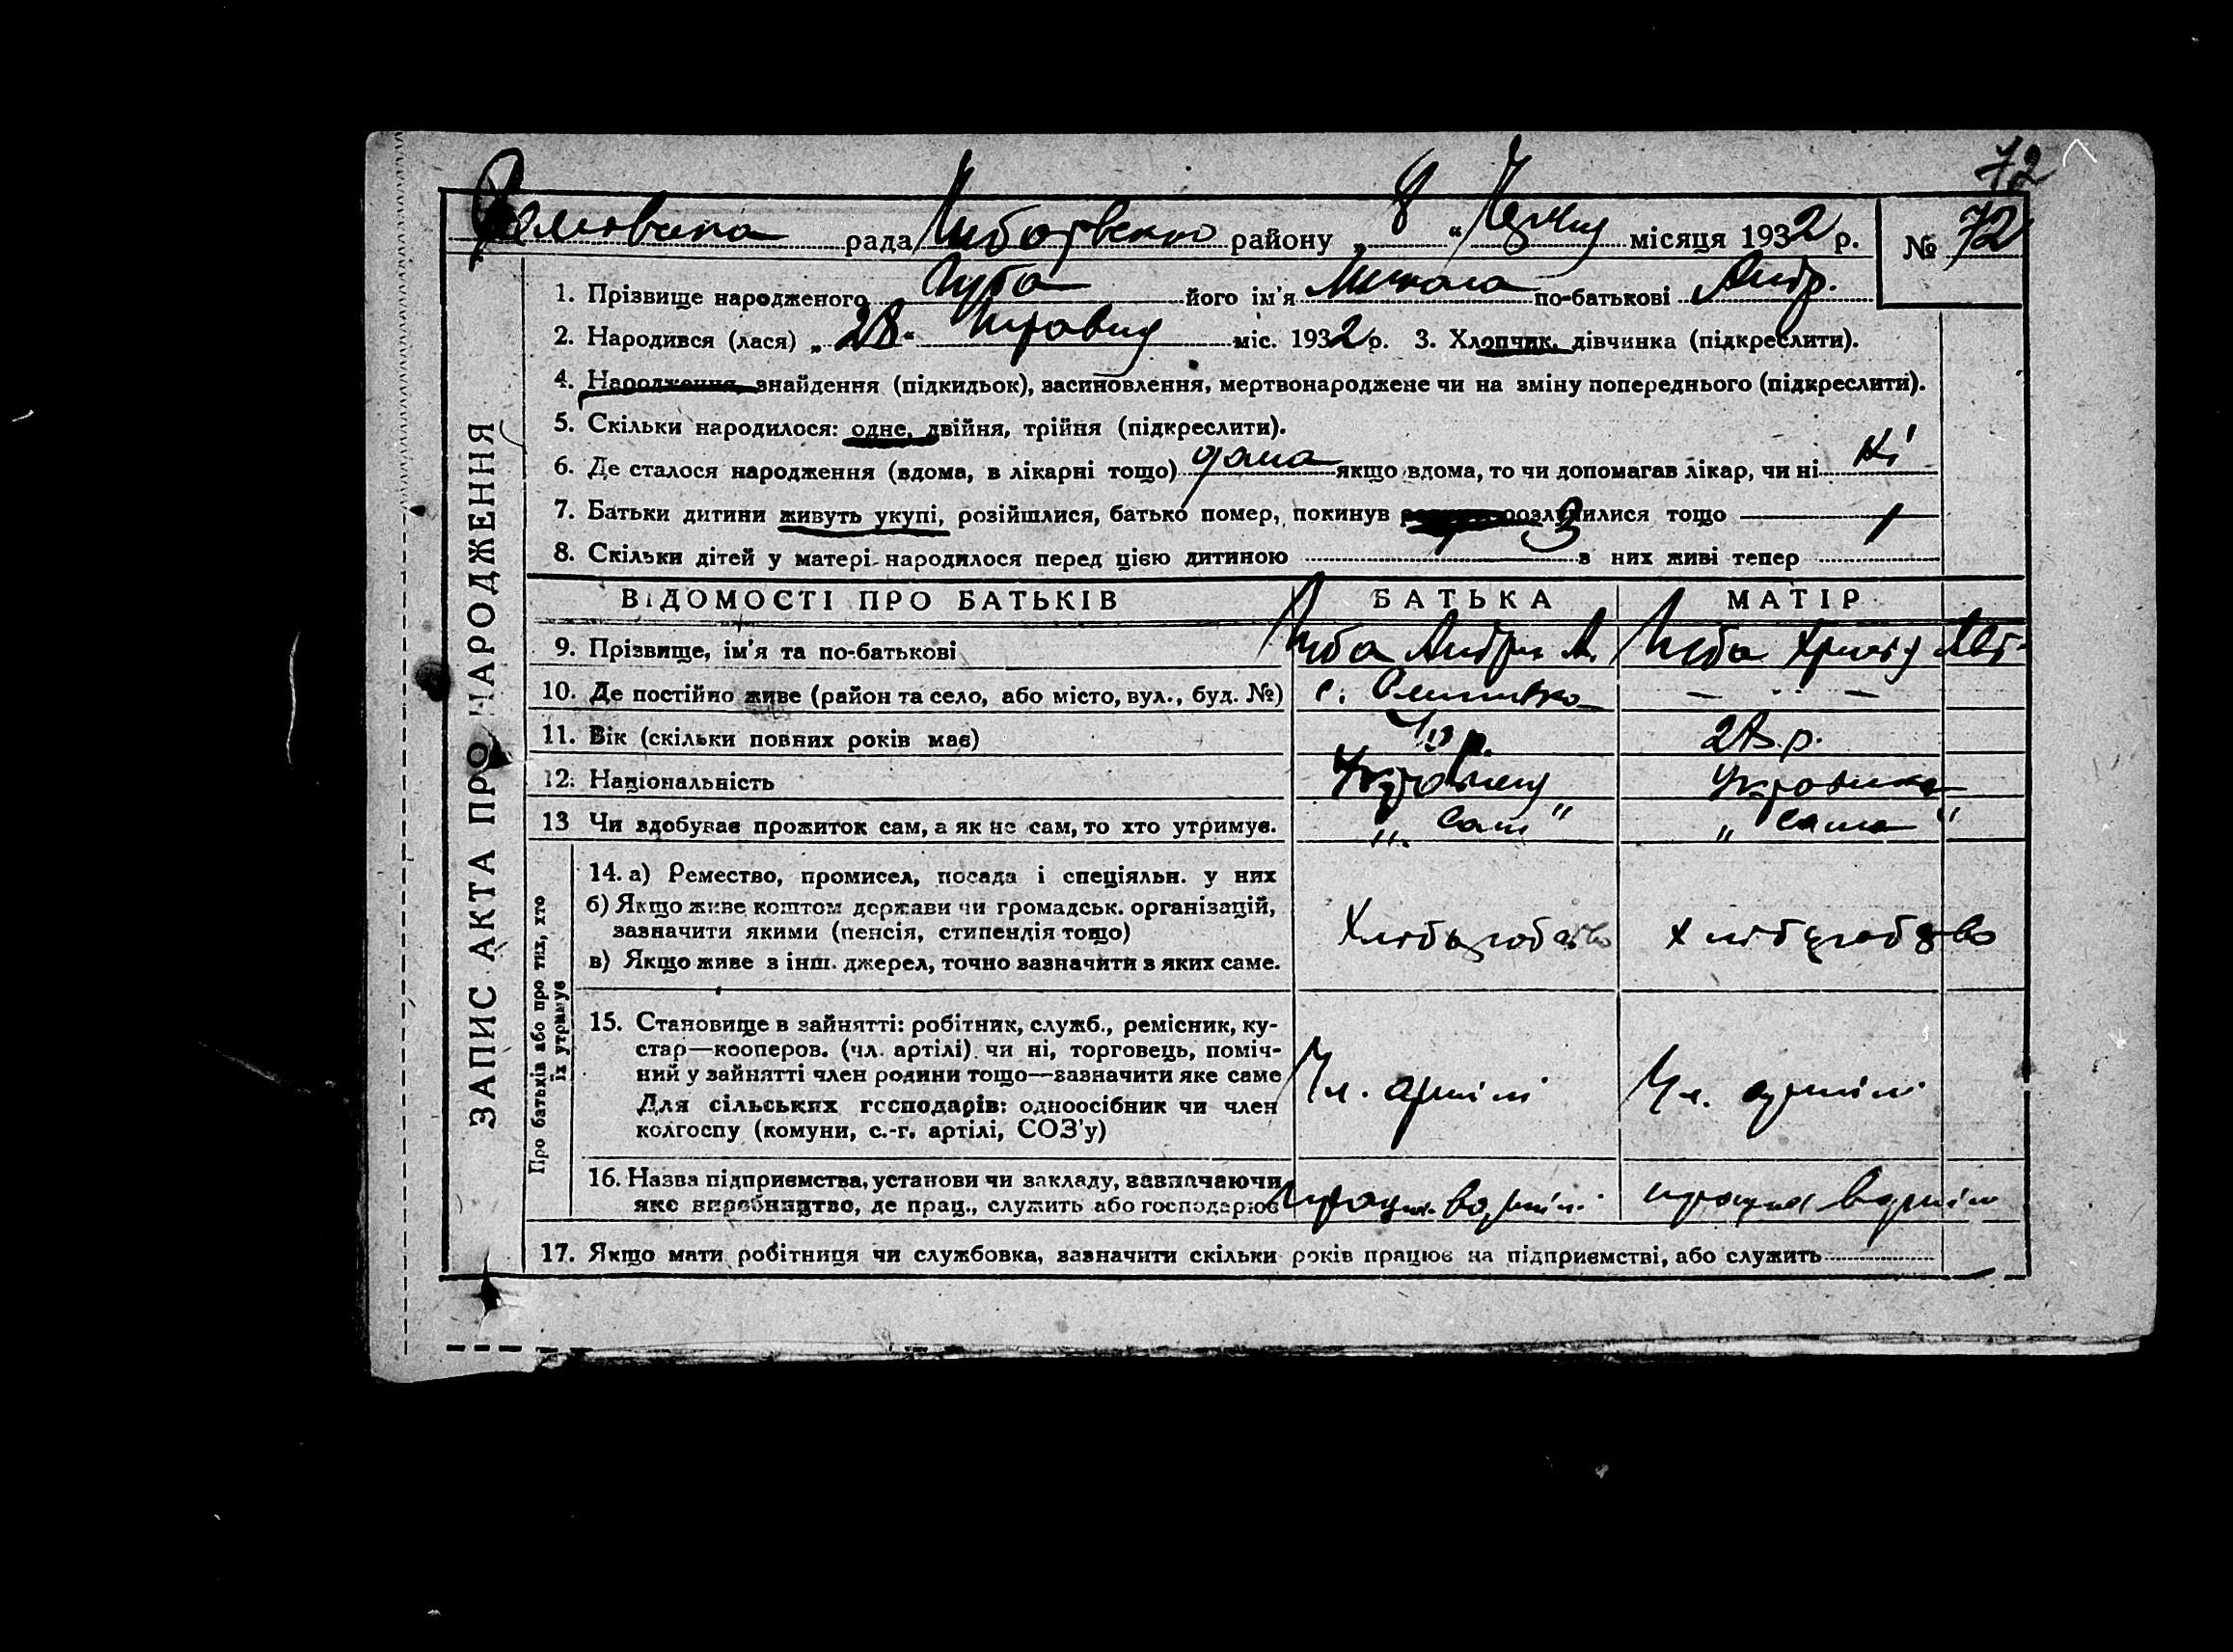 72
рада району „ 8 “ Червня місяця 1932 р. № 72
1. Прізвище народженого його ім'я Микола по-батькові Андр.
2. Народився (лася) „ 28 “ травня міс. 1932 р. 3. Хлопчик, дівчинка (підкреслити).
4. Народження, знайдення (підкидьок), засиновлення, мертвонароджене чи на зміну попереднього (підкреслити).
5. Скільки народилося: одне, двійня, трійня (підкреслити).
6. Де сталося народження (вдома, в лікарні тощо) дома якщо вдома, то чи допомагав лікар, чи ні ні
7. Батьки дитини живуть укупі, розійшлися, батько помер, покинув розлучилися тощо
8. Скільки дітей у матері народилося перед цією дитиною 3 з них живі тепер 1
ВІДОМОСТІ ПРО БАТЬКІВ БАТЬКА МАТІР
9. Прізвище, ім'я та по-батькові Андрій А.
10. Де постійно живе (район та село, або місто, вул., буд. №) с. — ·· —
11. Вік (скільки повних років має) р. 28 р.
12. Національність Українець Українка
13 Чи здобуває прожиток сам, а як не сам, то хто утримує. „ Сам “ „ Сама “
14. а) Ремество, промисел, посада і спеціяльн. у них
б) Якщо живе коштом держави чи громадськ. організацій,
зазначити якими (пенсія, стипендія тощо)
в) Якщо живе з інш. джерел, точно зазначити з яких саме.
Хліборобство Хліборобство
15. Становище в зайнятті: робітник, служб., ремісник, ку-
стар—кооперов. (чл. артілі) чи ні, торговець, поміч-
ний у зайнятті член родини тощо—зазначити яке саме
Для сільських господарів: одноосібник чи член
колгоспу (комуни, с.-г. артілі, СОЗ'у)
Чл. артілі Чл. артілі
16. Назва підприємства, установи чи закладу, зазначаючи
яке виробництво, де прац., служить або господарює
працює в артілі працює в артілі
17. Якщо мати робітниця чи службовка, зазначити скільки років працює на підприємстві, або служить
ЗАПИС АКТА ПРО НАРОДЖЕННЯ
Про батьків або про тих, хто
їх утримує